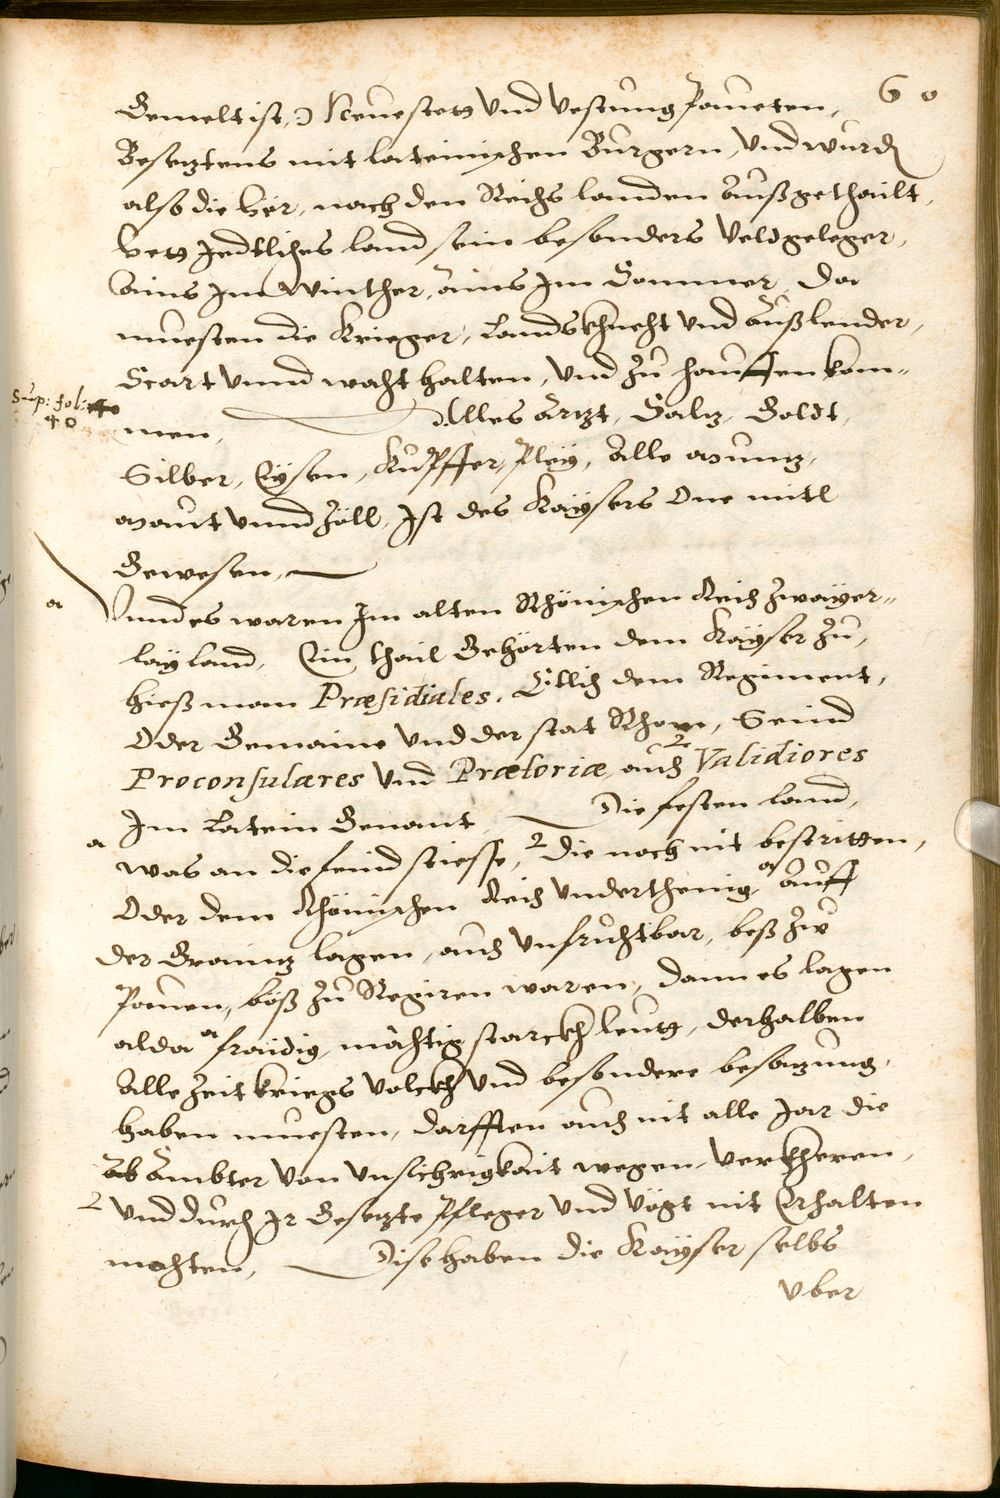 60
Gemelt ist,) Neuestett Vnd Vestung paueten,
Besetztens mit lateinischen Burgern, Vnd wurd
also die heer, nach den Reichs landen Außgethailt,
hett Jedtliches land sein besonders Veldgeleger,
Ains Im Winther, ains Im Sommer, Da
muesten die Krieger, Landskhnecht Vnd Außlender,
Scart Vnnd wacht halten, Vnd Zu hauffen kom-
Sup: fol:
40
men, Alles Ärtzt, Saltz, Goldt,
Silber, Eysen, Kupffer, Pley, Alle Muntz,
Maut Vnnd Zöll, Ist des Kaysers One mitl
Gewesen,
a Vnnd es waren Im alten Rhömischen Reich Zwayer-
lay land, Ein thail Gehörten dem Kayser Zu,
hieß man Præsidiales. Etlich dem Regiment,
Oder Gemaine Vnd der stat Rhom, Seind
Proconsulares Vnd Prætoriæ, auch 2 Validiores
Im Latein Genant, Die festen land,
a was an die feind stiesse, 2 die noch nit bestritten,
Oder dem Rhömischen Reich Vnderthenig, a auff
der Granitz lagen, auch Vnfruchtbar, beß Zu
Pauen, böß Zu Regiren waren, Dann es lagen
alda a fraidig, mächtig starckh leutt, derhalben
Alle Zeit kriegs Volckh Vnd besondere besatzung,
haben muesten, darfften auch nit alle Jar die
Ab Ämbter Von Vnsichrigkait wegen, Verkheren,
2 Vnd durch Ir Gesetzte Pfleger Vnd Vögt nit Erhalten
mochten, Dise haben die Kayser selbs
Vber